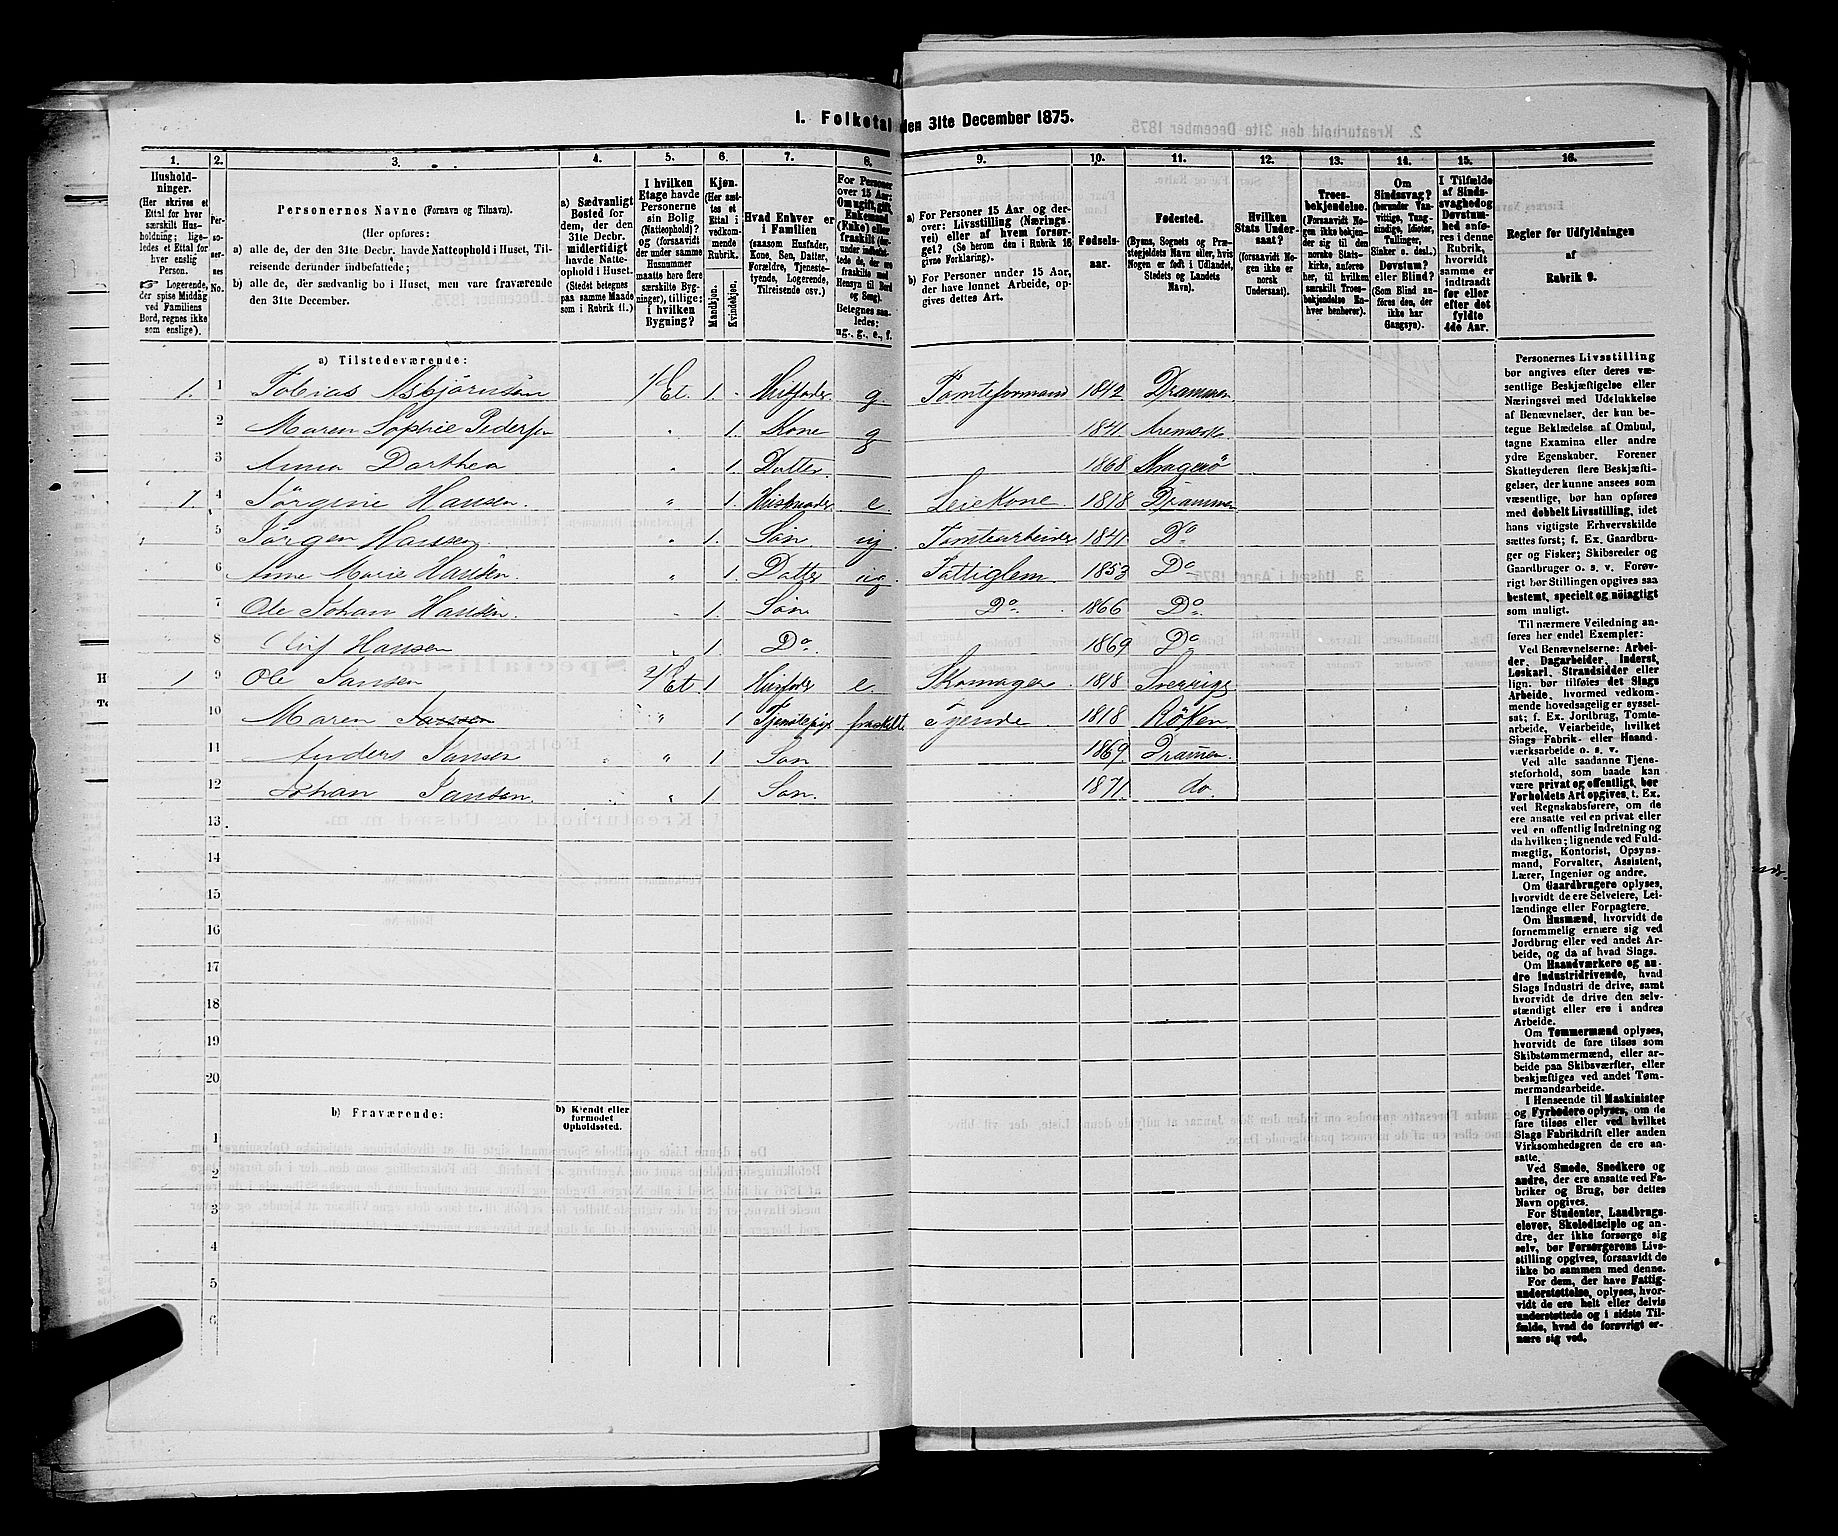 I. Folketal den 31te December 1875.
1. 2. 3. 4. 5. 6. 7. 8. 9. 10. 11. 12. 13. 14. 15. 16.
Husholdninger.
(Her skrives et Ettal for hver særskilt Husholdning; ligeledes et Ettal for hver enslig Person.
Logerende, der spise Middag ved Familiens Bord, regnes ikke som enslige).
Personernes No.
Personernes Navne (Fornavn og Tilnavn).
(Her opføres:
a) alle de, der den 31te Decbr. havde Natteophold i Huset, Tilreisende derunder indbefattede;
b) alle de, der sædvanlig bo i Huset, men vare fraværende den 31te December.
a) Sædvanligt Bosted for dem, der den 31te Decbr. midlertidigt havde Natteophold i Huset. (Stedet betegnes paa samme Maade som i Rubrik 11.)
I hvilken Etage havde Personerne sin Bolig (Natteophold)? og (forsaavidt der under samme Husnummer maatte høre flere særskilte Bygninger), tillige: i hvilken Bygning?
Kjøn. (Her sættes et Ettal i vedkommende Rubrik.
Mandkjøn. Kvindekjøn.
Hvad Enhver er i Familien
(saasom Husfader, Kone, Søn, Datter, Forældre, Tjenestetyende, Logerende, Tilreisende osv.)
For Personer over 15 Aar: Om ugift, gift, Enkemand (Enke) eller fraskilt (derunder indbefattede de, der ere fraskilte med Hensyn til Bord og Seng). Betegnes saaledes: ug., g., e., f.
a) For Personer 15 Aar og derover: Livsstilling (Næringsvei) eller af hvem forsørget? (Se herom den i Rubrik 16 givne Forklaring).
b) For Personer under 15 Aar, der have lønnet Arbeide, opgives dettes Art.
Fødselsaar.
Fødested.
(Byens, Sognets og Præstegjeldets Navn eller, hvis Nogen er født i Udlandet, Stedets og Landets Navn).
Hvilken Stats Undersaat?
(forsaavidt Nogen ikke er norsk Undersaat).
Troesbekjendelse.
(Forsaavidt Nogen ikke bekjender sig til den norske Statskirke, anføres her, til hvilken særskilt Troesbekjendelse Enhver henhører).
Om Sindssvag? (herunder Vanvittige, Tungsindige, Idioter, Tullinger, Sinker o. desl.) Døvstum? eller Blind? (Som Blind anføres den, der ikke har Gangsyn).
I Tilfælde af Sindssvaghed og Døvstumhed anføres i denne Rubrik, hvorvidt samme er indtraadt før eller efter det fyldte 4de Aar.
Regler for Udfyldningen af Rubrik 9.
a) Tilstedeværende:
1. 1 Tobias Asbjørnsen 1/Et. 1. Husfader g. Tomteformand 1842 Drammen
2 Maren Sophie Pedersen " 1. Kone g 1841. Aremark
3 Anna Dorthea " 1. Datter 1868 Kragerø
1. 4 Jørgine Hansen. " 1. Husmoder e. Leiekone. 1818 Drammen
5 Jørgen Hansen " 1. Søn ug. Tomtearbeider 1841. Do
6 Anne Marie Hansen. " 1. Datter ug. Fattiglem. 1853 Do
7 Ole Johan Hansen. 1. Søn Do. 1866 Do
8 Oluf Hansen " 1 Do. 1869 Do
1 9 Ole Jansen 2/Et 1 Husfader e. Skomager 1818 Sverrige
10 Maren Jansen " 1 Tjenstepige fraskilt Tyende. 1818 Røken
11 Anders Jansen " 1 Søn 1869. Drammen.
12 Johan Jansen. " 1. Søn. 1871. do.
13
14
15
16
17
18
19
20
b) Fraværende:
b) Kjendt eller formodet Opholdssted.
1
2
3
4
5
6
Personernes Livsstilling
bør angives efter deres væ-
sentlige Beskjæftigelse eller
Næringsvei med Udelukkelse
af Benævnelser, der kun be-
tegne Beklædelse af Ombud,
tagne Examina eller andre
ydre Egenskaber. Forener
Skatteyderen flere Beskjæfti-
gelser, der kunne ansees som
væsentlige, bør han opføres
med dobbelt Livsstilling, idet
hans vigtigste Erhvervskilde
sættes først; f. Ex. Gaardbru-
ger og Fisker; Skibsreder og
Gaardbruger o. s. v. Forøv-
rigt bør Stillingen opgives saa
bestemt, specielt og nöiagtigt
som muligt.
Til nærmere Veiledning an-
føres her endel Exempler:
Ved Benævnelserne: Arbei-
der, Dagarbeider, Inderst,
Løskarl, Strandsidder eller
lign. bør tilføies det Slags
Arbeide, hvormed vedkom-
mende hovedsagelig er syssel-
sat; f. Ex. Jordbrug, Tomte-
arbeide, Veiarbeide, hvilket
Slags Fabrik- eller Haand-
værksarbeide o. s. v.
Ved alle saadanne Tjene-
steforhold, som baade kan
være privat og offentligt, bør
Forholdets Art opgives, t. Ex.
ved Regnskabsførere, om de
ere ansatte ved en privat eller
ved en offentlig Indretning og
da hvilken; lignende ved Fuld-
mægtig, Kontorist, Opsyns-
mand, Forvalter, Assistent,
Lærer, Ingeniør og andre.
Om Gaardbrugere oplyses,
hvorvidt de ere Selveiere, Lei-
lændinge eller Forpagtere.
Om Husmænd, hvorvidt de
fornemmelig ernære sig ved
Jordbrug eller ved andet Ar-
beide, og da af hvad Slags.
Om Haandværkere og an-
dre Industridrivende, hvad
Slags Industri de drive, samt
hvorvidt de drive den selv-
stændigt eller ere i andres
Arbeide.
Om Tømmermænd oplyses,
hvorvidt de fare tilsøs som
Skibstømmermænd, eller ar-
beide paa Skibsværfter, eller
beskjæftiges ved andet Tøm-
mermandsarbeide.
I Henseende til Maskinister
og Fyrbødere oplyses, om de
fare tilsøs eller ved hvilket
Slags Fabrikdrift eller anden
Virksomhedsgren de ere an-
satte.
Ved Smede, Snedkere og
andre, der ere ansatte ved Fa-
briker og Brug, bør dettes
Navn opgives.
For Studenter, Landbrugs-
elever, Skoledisciple og an-
dre, der ikke forsørge sig
selv, bør Forsørgerens Livs-
stilling opgives, forsaavidt de
ikke bo sammen med denne.
For dem, der have Fattig-
understøttelse, oplyses, hvor-
vidt de ere helt eller delvis
understøttede og i sidste Til-
fælde, hvad de forøvrigt er-
nære sig ved.